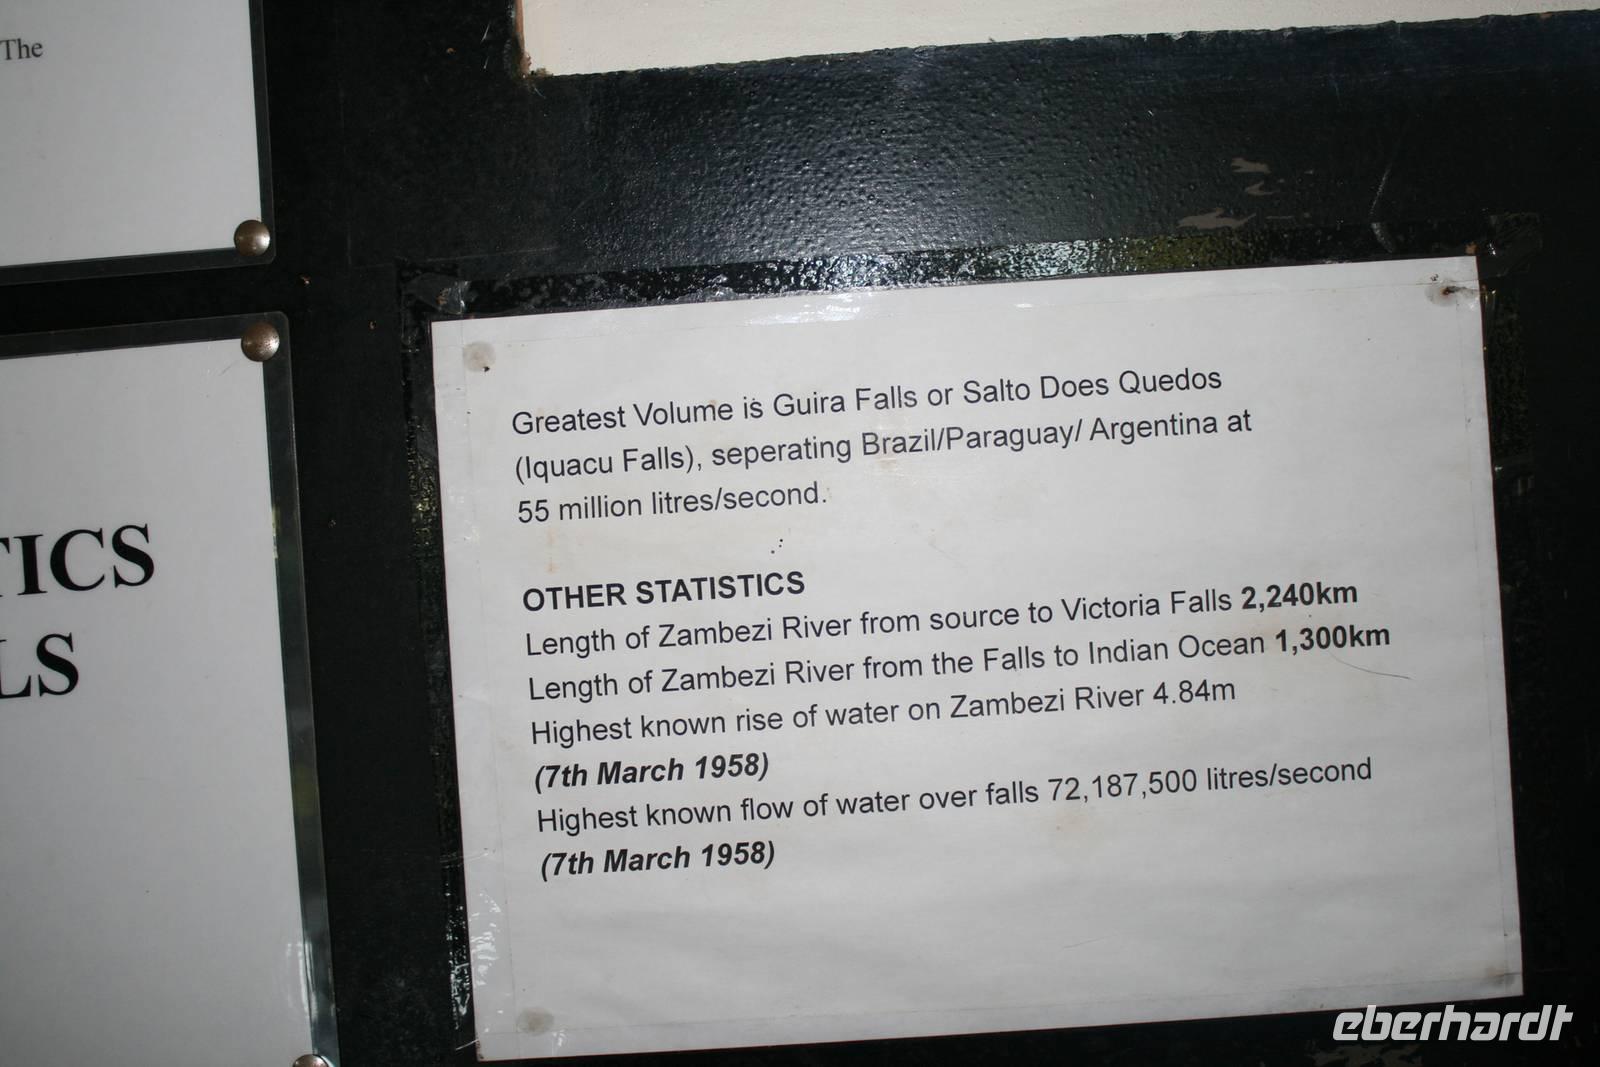 The
TICS
LS
Greatest Volume is Guira Falls or Salto Does Quedos
(Iquacu Falls), seperating Brazil/Paraguay/ Argentina at
55 million litres/second.
OTHER STATISTICS
Length of Zambezi River from source to Victoria Falls 2,240km
Length of Zambezi River from the Falls to Indian Ocean 1,300km
Highest known rise of water on Zambezi River 4.84m
(7th March 1958)
Highest known flow of water over falls 72,187,500 litres/second
(7th March 1958)
eberhardt